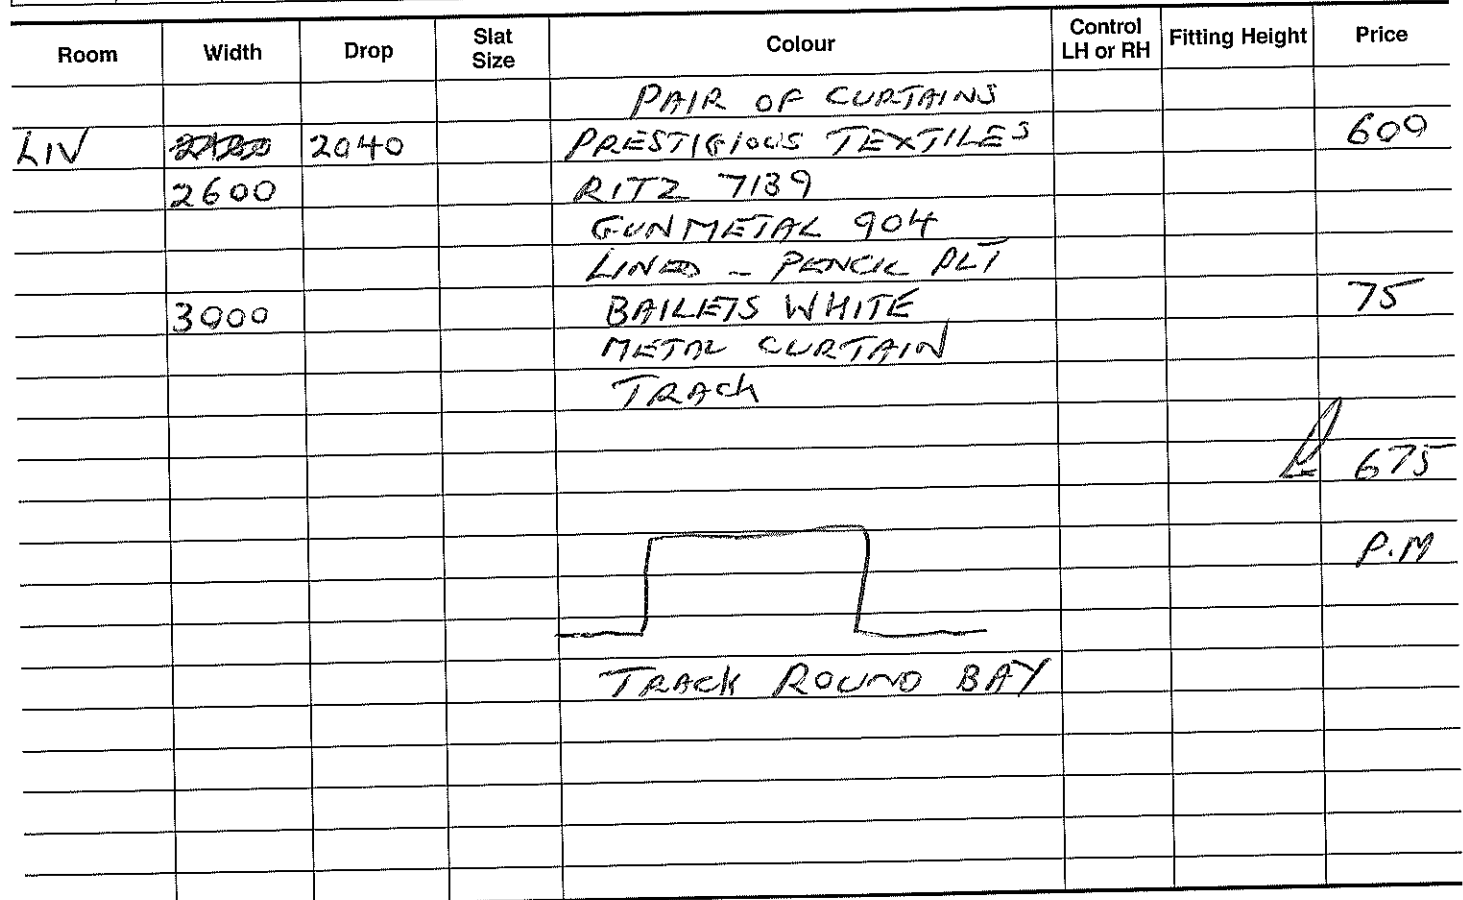 Room Width Drop Slat Size Colour Control LH or RH Fitting Height Price
PAIR OF CURTAINS
LIV 2040 PRESTIGIOUS TEXTILES 609
2600 RITZ 7139
GUNMETAL 904
LINED - PENCIL PLT
3000 BAILEYS WHITE 75
METAL CURTAIN
TRACK
675
P.M
TRACK ROUND BAY